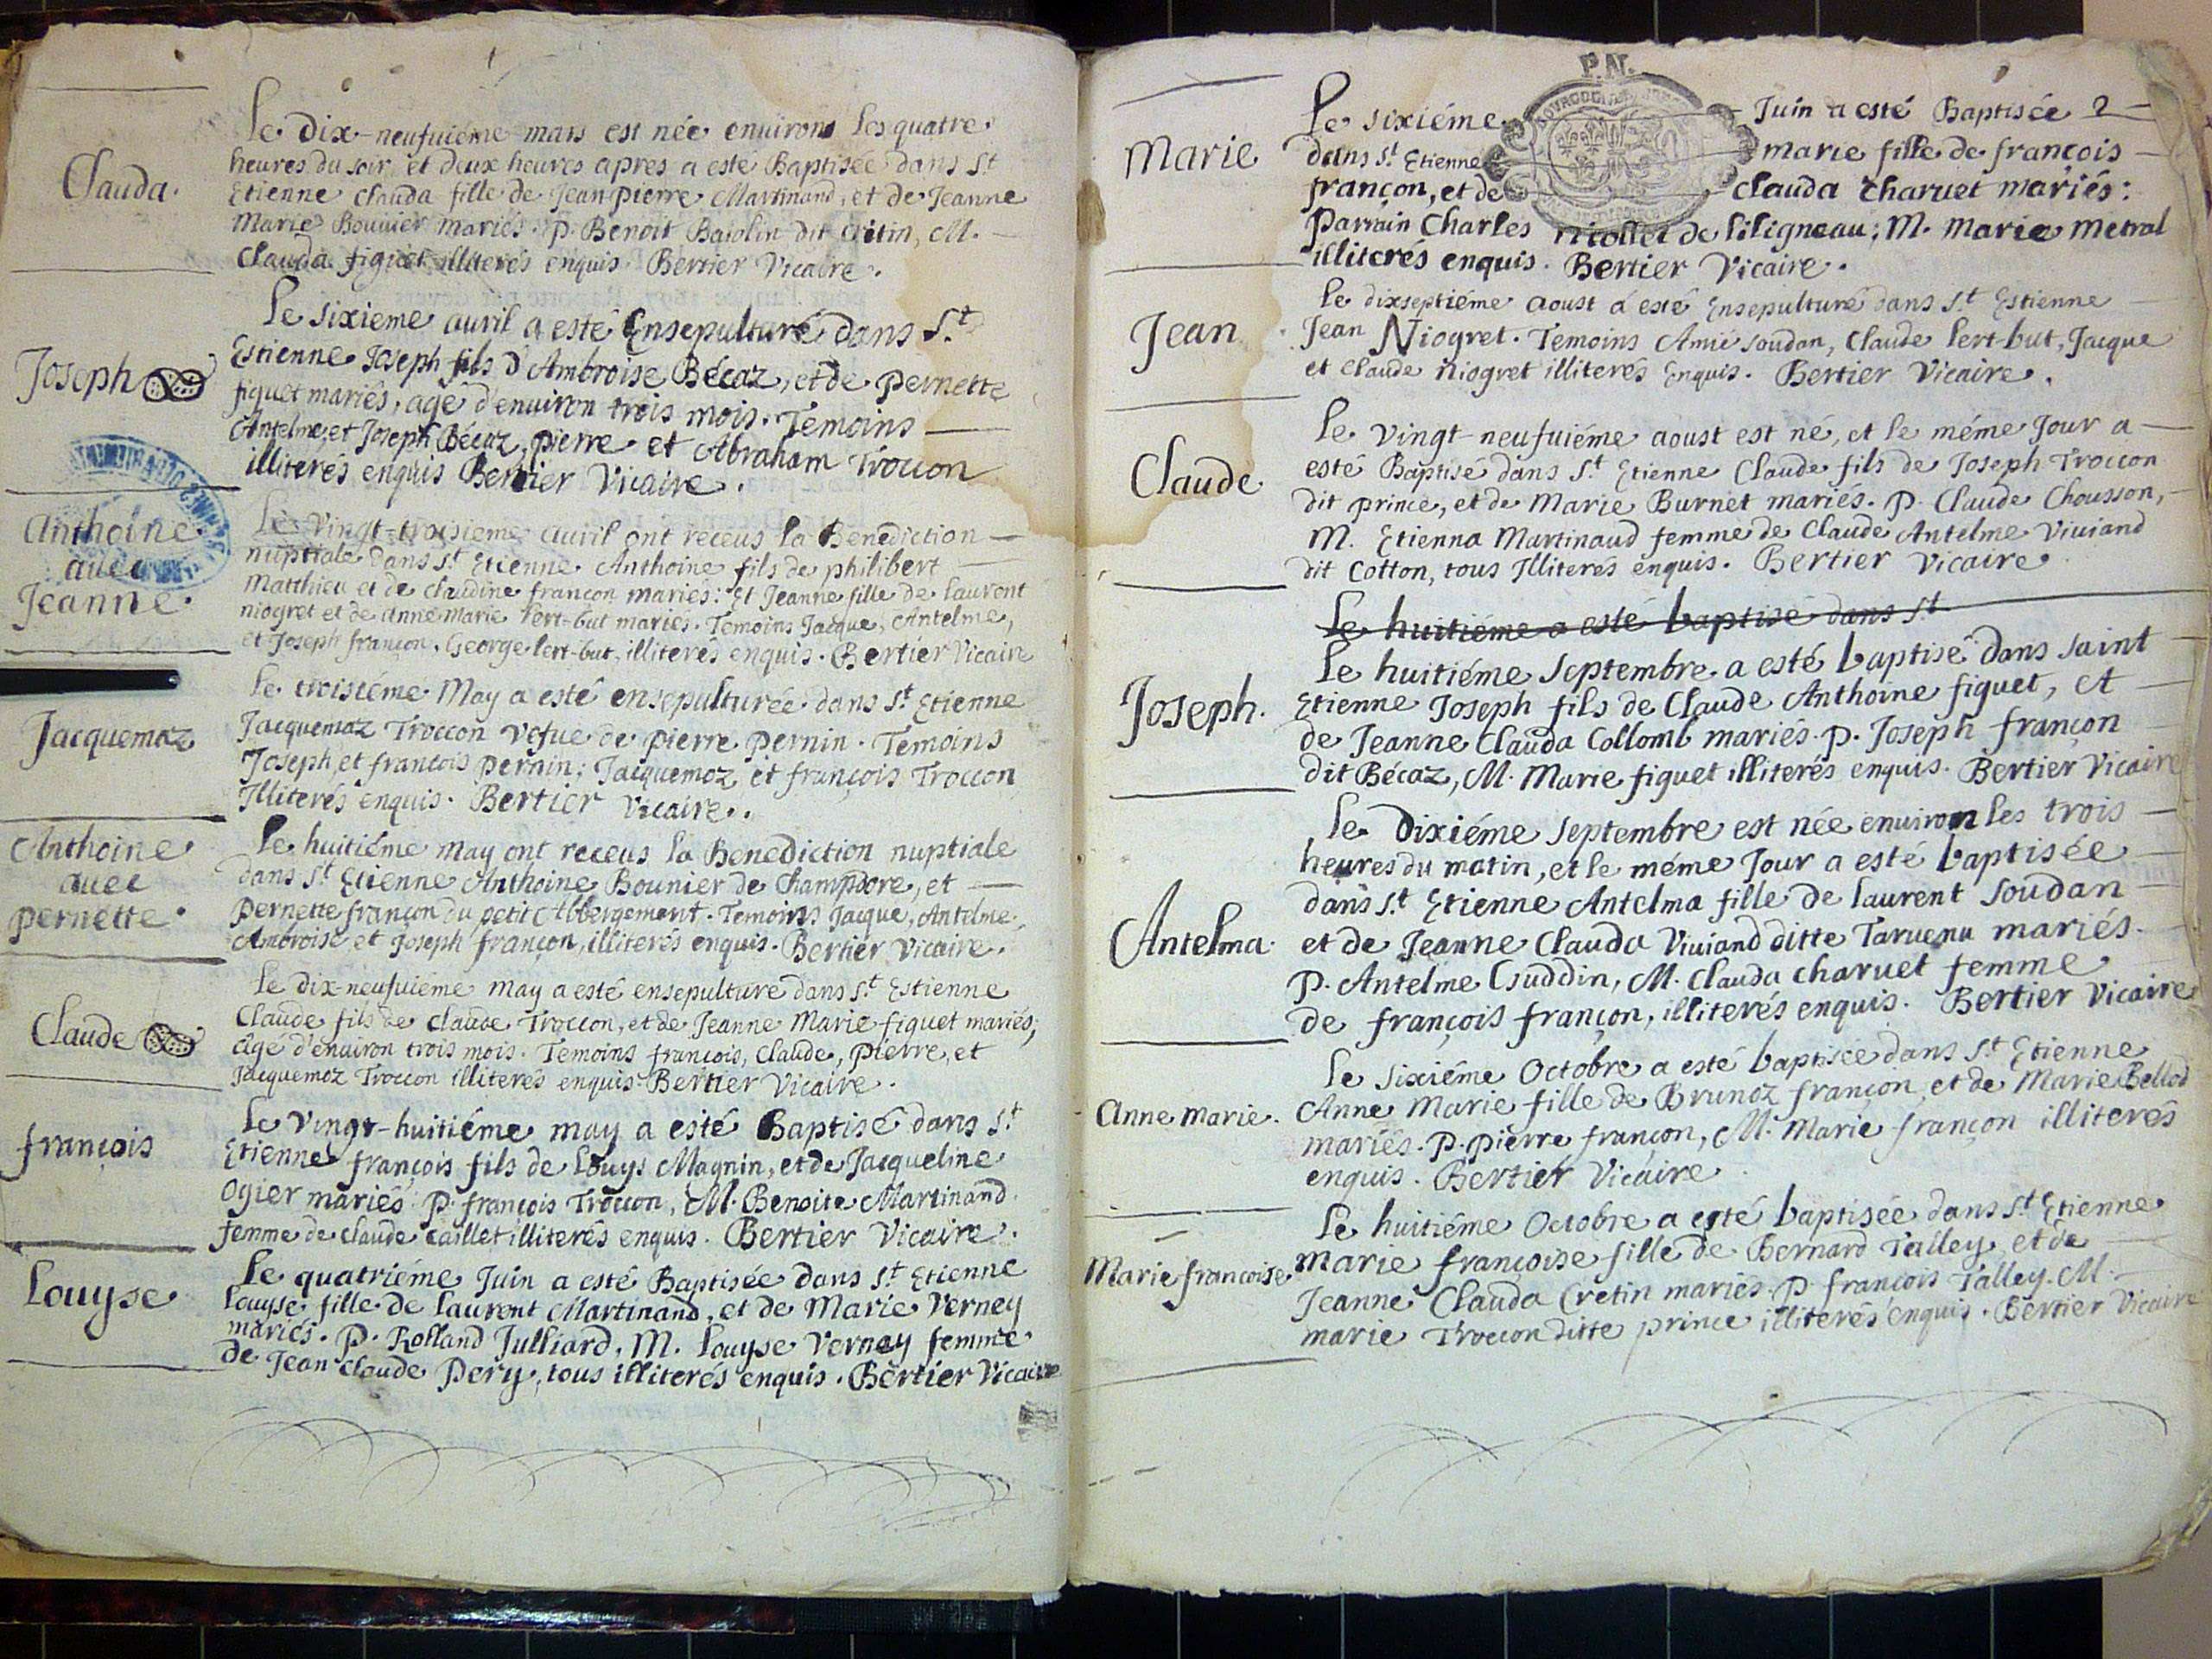 Clauda.
Le Dix-neufuiéme mars est née environs les quatre
heures du soir, et deux heures apres a esté Baptisée dans St
Etienne Clauda fille de Jean pierre Martinand, et de Jeanne
Marie Bouuier mariés. P. Benoit Basolin dit Critin, M. —
Clauda figuet illiterés enquis Bertier Vicaire.
Joseph
Le Sixieme auril a esté Ensepulturé dans St
Estienne Joseph fils d'Ambroise Bécaz, et de pernette
figuet mariés, agé d'enuiron trois mois. Temoins —
Antelme, et Joseph Bécaz, pierre et Abraham Troccon
illiterés enquis Bertier Vicaire.
Anthoine
auec
Jeanne.
Le Vingt-troisieme auril ont receus la Benediction —
nuptiale dans St Etienne Anthoine fils de philibert —
Matthieu et de claudine françon mariés: Et Jeanne fille de laurent
niogret et de anne Marie lert-but mariés. Temoins Jacque, Antelme,
et Joseph françon, George lert-but, illiterés enquis. Bertier Vicaire
Jacquemaz
Le troisiéme May a esté ensepulturée dans St Etienne
Jacquemaz Troccon Vefue de pierre pernin. Temoins
Joseph, et francois pernin; Jacquemoz et françois Troccon
Illiterés enquis. Bertier Vicaire.
Anthoine
auec
pernette.
Le huitiéme may ont receus la Benediction nuptiale
dans St Etienne Anthoine Bounier de Champdore, et —
pernette françon du petit Abbergement. Temoins Jacque, Antelme,
Ambroise et Joseph françon, illiterés enquis. Bertier Vicaire.
Claude
Le dix-neufuiéme may a esté ensepulturé dans St Estienne
Claude fils de Claude Troccon, et de Jeanne Marie figuet mariés;
agé d'enuiron trois mois. Temoins françois, Claude, pierre, et
Jacquemoz Troccon illiterés enquis Bertier Vicaire.
françois
Le Vingt-huitiéme may a esté Baptisé dans St
Etienne françois fils de Louys Magnin, et de Jacqueline
Ogier mariés P. françois Troccon, M. Benoite Martinand
femme de Claude Caillet illiterés enquis. Bertier Vicaire.
Louyse
Le quatriéme Juin a esté Baptisée dans St Etienne
Louyse fille de Laurent Martinand, et de Marie Verney
mariés. P. Rolland Julliard, M. Louyse Verney femme
de Jean Claude Pery, tous illiterés enquis. Bertier Vicaire
P.N.
Marie
Le sixiéme Juin a esté Baptisée 2 —
dans St Etienne marie fille de françois —
françon, et de Clauda Charuet mariés:
Parrain Charles niollet de liligneau; M. Marie Metral
illiterés enquis. Bertier Vicaire.
Jean
Le dixseptiéme aoust a esté Ensepulturé dans St Estienne —
Jean Niogret. Temoins Amié soudan, Claude lert-but, Jacque
et Claude niogret illiterés Enquis. Bertier Vicaire.
Claude
Le vingt-neufuiéme aoust est né, et le méme Jour a —
esté Baptisé dans St Etienne Claude fils de Joseph Troccon
dit prince, et de Marie Burnet mariés. P. Claude Chousson, —
M. Etienna Martinaud femme de Claude Antelme Viuiand
dit Cotton, tous Illiterés enquis. Bertier Vicaire
Le huitiéme a esté baptisé dans St
Joseph.
Le huitiéme Septembre a esté baptisé dans saint —
Etienne Joseph fils de Claude Anthoine figuet, et —
de Jeanne Clauda Collomb mariés. P. Joseph françon —
dit Bécaz, M. Marie figuet illiterés enquis. Bertier Vicaire
Antelma.
Le Dixiéme Septembre est née enuiron les trois —
heures du matin, et le méme Jour a esté baptisée —
dans St Etienne Antelma fille de laurent Soudan —
et de Jeanne Clauda Viuiand ditte Taruenu mariés. —
P. Antelme Guddin, M. Clauda Charuet femme
de françois françon, illiterés enquis. Bertier Vicaire
Anne Marie.
Le Sixiéme Octobre a esté baptisée dans St Etienne
Anne Marie fille de Brunoz françon, et de Marie Bellod
mariés. P. pierre françon, M. Marie françon illiterés
enquis. Bertier Vicaire
Marie françoise
Le huitiéme Octobre a esté baptisée dans St Etienne
Marie françoise fille de Bernard Talley, et de —
Jeanne Clauda Cretin mariés. P. françois Talley. M. —
marie Troccon ditte prince illiterés enquis. Bertier Vicaire